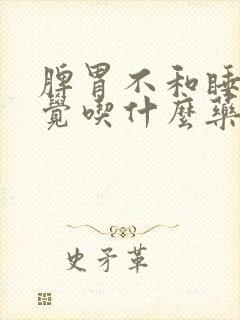 脾胃不和睡
覺喫什麼藥
史矛革